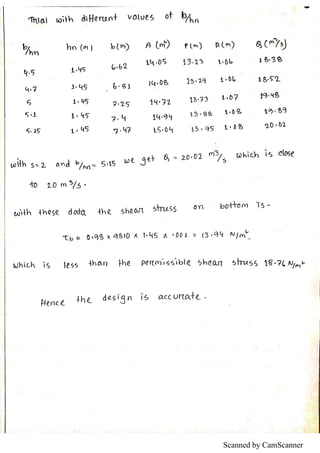 Trial with different values of b/hn
b/hn hn (m) b(m) A (m²) P(m) R(m) Q (m³/s)
4.5 1.45 6.62 14.05 13.23 1.06 18.38
4.7 1.45 6.81 14.08 13.29 1.06 18.52
5 1.45 7.25 14.72 13.73 1.07 19.48
5.1 1.45 7.4 14.94 13.88 1.08 19.89
5.15 1.45 7.47 15.04 13.95 1.08 20.02
with s=2 and b/hn= 5.15 we get Q = 20.02 m³/s which is close
to 20 m³/s.
with these data the shear stress on bottom is-
τb = 0.98 x 9810 x 1.45 x .001 = 13.94 N/m²
which is less than the permissible shear stress 18.76 N/m²
Hence the design is accurate.
Scanned by CamScanner